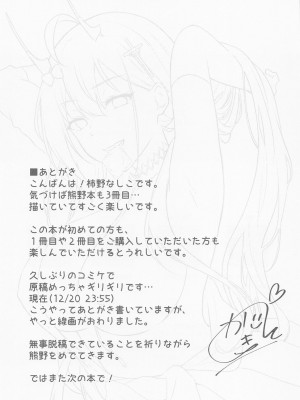 ■あとがき
こんばんは!柿野なしこです。
気づけば熊野本も3冊目…
描いていてすごく楽しいです。
この本が初めての方も、
1冊目や2冊目をご購入していただいた方も
楽しんでいただけるとうれしいです。
久しぶりのコミケで
原稿めっちゃギリギリです…
現在(12/20 23:55)
こうやってあとがき書いていますが、
やっと線画がおわりました。
無事脱稿できていることを祈りながら
熊野をめでてきます。
ではまた次の本で!